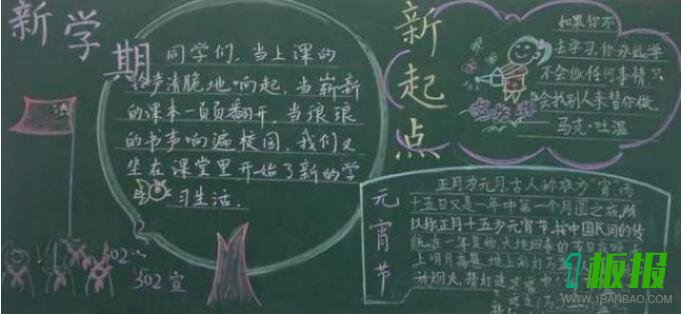 新学期
同学们,当上课的
铃声清脆地响起,当崭新
的课本一页页翻开,当琅琅
的书声响遍校园,我们又
坐在课堂里开始了新的学
习生活.
302宣
新起点
如果你不
去学习,你永远学
不会做任何事情只
会找别人来替你做。
马克·吐温
元宵节
正月为元月,古人称夜为"宵"而
十五日又是一年中第一个月圆之夜,所
以称正月十五为元宵节,按中国民间的传
统,在一年
上明月高悬,地上
1板报
WWW.1BANBAO.COM